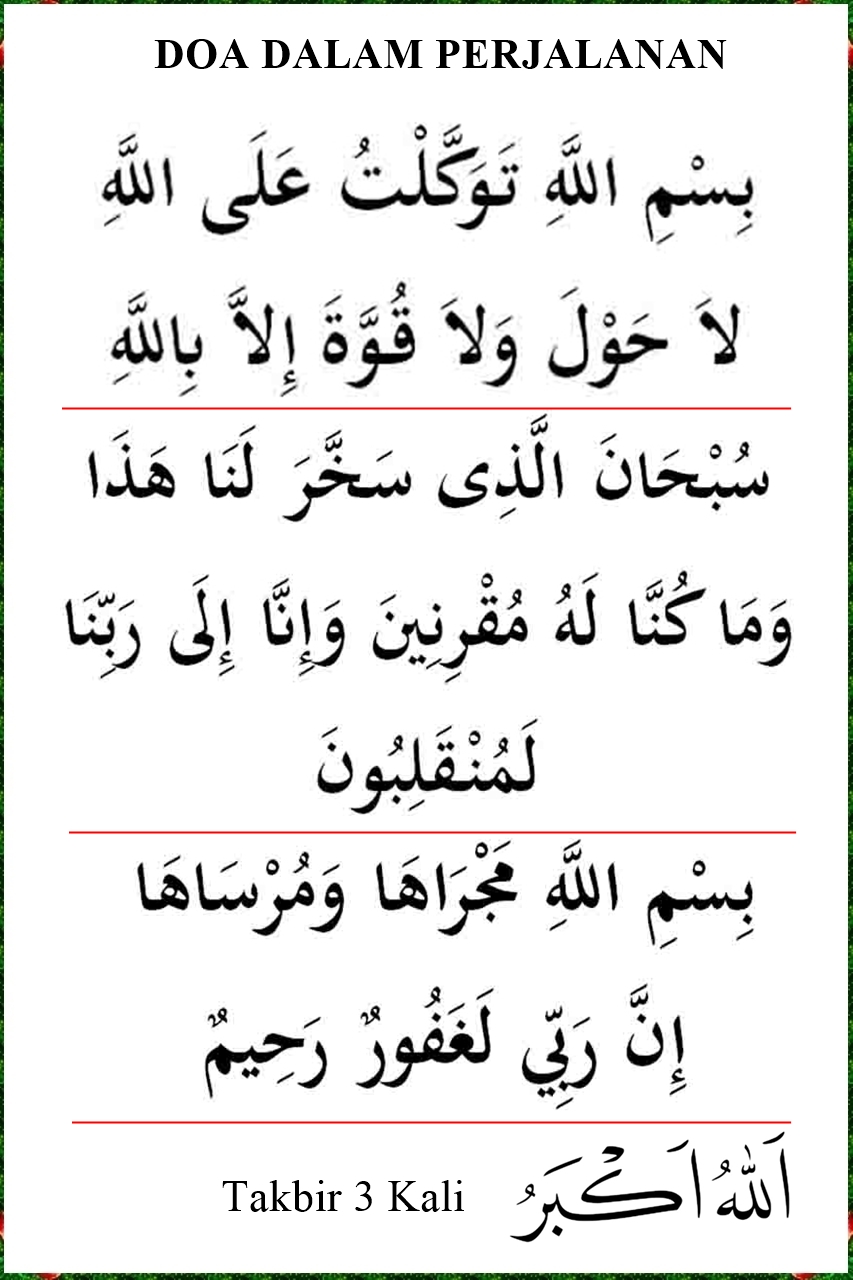 DOA DALAM PERJALANAN
بِسْمِ اللَّهِ تَوَكَّلْتُ عَلَى اللَّهِ
لاَ حَوْلَ وَلاَ قُوَّةَ إِلاَّ بِاللَّهِ
سُبْحَانَ الَّذِى سَخَّرَ لَنَا هَذَا
وَمَا كُنَّا لَهُ مُقْرِنِينَ وَإِنَّا إِلَى رَبِّنَا
لَمُنْقَلِبُونَ
بِسْمِ اللَّهِ مَجْرَاهَا وَمُرْسَاهَا
إِنَّ رَبِّي لَغَفُورٌ رَحِيمٌ
اَللهُ اَكْبَرُ Takbir 3 Kali